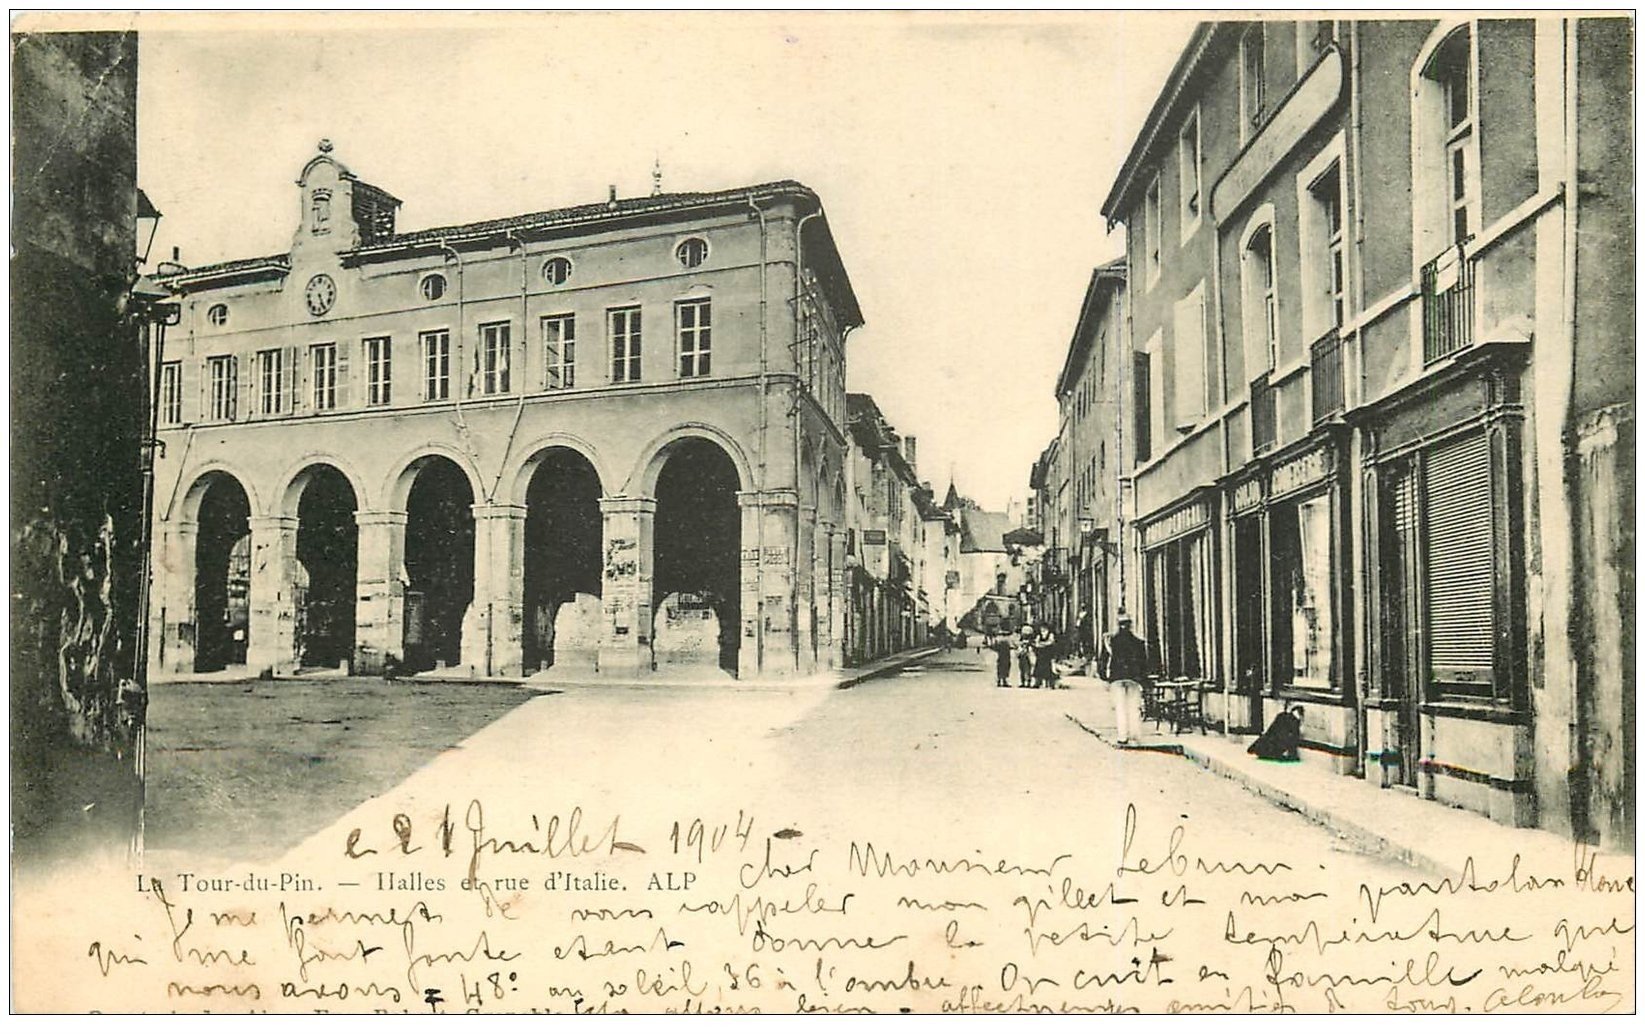 Le 21 Juillet 1904
La Tour-du-Pin. — Halles et rue d'Italie. ALP
Cher Monsieur Lebrun.
Je me permet de vous rappeler mon gillet et mon pantalon blanc
qui me font faute etant donner la petite température que
nous avons = 48° au soleil, 36 à l'ombre. On cuit en famille malgré
allons bien - affectueuses amitiés de tous.